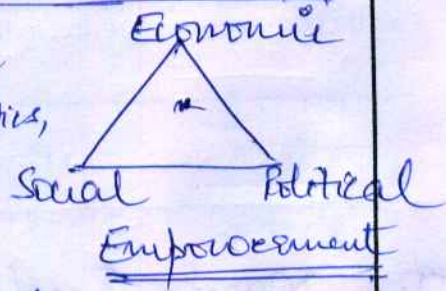 Economic
ties,
Social Political
Empowerment